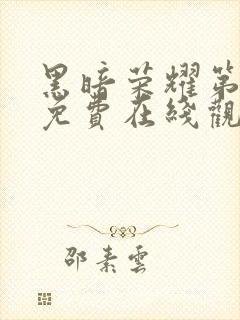 黑暗荣耀第
免費在綫觀
邵素雲